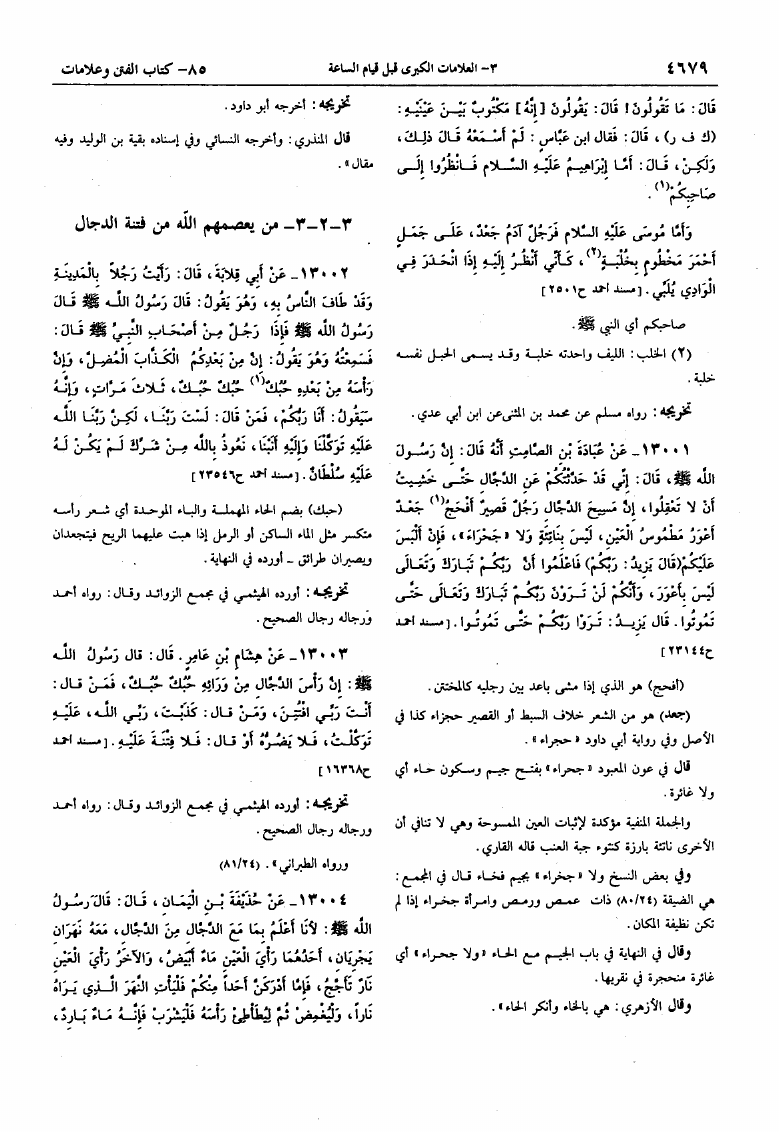 ٨٥- كتاب الفتن وعلامات
٣- العلامات الكبرى قبل قيام الساعة
٤٦٧٩
قَالَ: مَا تَقُولُونَ! قَالَ: يَقُولُونَ [إِنَّهُ] مَكْتُوبٌ بَيْنَ عَيْنَيْهِ:
(ك ف ر)، قَالَ: فقال ابن عَبَّاسٍ: لَمْ أَسْمَعْهُ قَالَ ذلِكَ،
وَلَكِنْ، قَالَ: أَمَّا إِبْرَاهِيمُ عَلَيْهِ السَّلام فَانْظُرُوا إِلَى
صَاحِبِكُمْ(١).
وَأَمَّا مُوسَى عَلَيْهِ السَّلام فَرَجُلٌ آدَمُ جَعْدٌ، عَلَى جَمَلٍ
أَحْمَرَ مَخْطُومٍ بِخُلْبَةٍ(٢)، كَأَنِّي أَنْظُرُ إِلَيْهِ إِذَا انْحَدَرَ فِي
الْوَادِي يُلَبِّي. [مسند احمد ح٢٥٠١]
صاحبكم أي النبي ﷺ.
(٢) الخلب: الليف واحدته خلبة وقد يسمى الحبل نفسه
خلبة.
تخريجه: رواه مسلم عن محمد بن المثنى عن ابن أبي عدي.
١٣٠٠١- عَنْ عُبَادَةَ بْنِ الصَّامِتِ أَنَّهُ قَالَ: إِنَّ رَسُولَ
الله ﷺ، قَالَ: إِنِّي قَدْ حَدَّثْتُكُمْ عَنِ الدَّجَّالِ حَتَّى خَشِيتُ
أَنْ لا تَعْقِلُوا، إِنَّ مَسِيحَ الدَّجَّالِ رَجُلٌ قَصِيرٌ أَفْحَجُ(١) جَعْدٌ
أَعْوَرُ مَطْمُوسُ الْعَيْنِ، لَيْسَ بِنَاتِئَةٍ وَلا «جَحْرَاءَ»، فَإِنْ أَلْبَسَ
عَلَيْكُمْ(قَالَ يَزِيدُ: رَبَّكُمْ) فَاعْلَمُوا أَنَّ رَبَّكُمْ تَبَارَكَ وَتَعَالَى
لَيْسَ بِأَعْوَرَ، وَأَنَّكُمْ لَنْ تَرَوْنَ رَبَّكُمْ تَبَارَكَ وَتَعَالَى حَتَّى
تَمُوتُوا. قَال يَزِيدُ: تَرَوْا رَبَّكُمْ حَتَّى تَمُوتُوا. [مسند احمد
ح٢٣١٤٤]
(أفحج) هو الذي إذا مشى باعد بين رجليه كالمختتن.
(جعد) هو من الشعر خلاف السبط أو القصير حجزاء كذا في
الأصل وفي رواية أبي داود «حجراء».
قال في عون المعبود «جحراء» بفتح جيم وسكون حاء أي
ولا غائرة.
والجملة المنفية مؤكدة لإثبات العين الممسوحة وهي لا تنافي أن
الأخرى ناتئة بارزة كنتوء جبة العنب قاله القاري.
وفي بعض النسخ ولا «جخراء» بجيم فخاء قال في المجمع:
هي الضيقة (٨٠/٢٤) ذات عمص ورمص وامرأة جخراء إذا لم
تكن نظيفة المكان.
وقال في النهاية في باب الجيم مع الحاء «ولا جحراء» أي
غائرة منحجرة في نقريها.
وقال الأزهري: هي بالخاء وأنكر الحاء».
تخريجه: أخرجه أبو داود.
قال المنذري: وأخرجه النسائي وفي إسناده بقية بن الوليد وفيه
مقال».
٣-٢-٣- من يعصمهم الله من فتنة الدجال
١٣٠٠٢- عَنْ أَبِي قِلابَةَ، قَالَ: رَأَيْتُ رَجُلاً بِالْمَدِينَةِ
وَقَدْ طَافَ النَّاسُ بِهِ، وَهُوَ يَقُولُ: قَالَ رَسُولُ اللَّهِ ﷺ قَالَ
رَسُولُ الله ﷺ فَإِذَا رَجُلٌ مِنْ أَصْحَابِ النَّبِيِّ ﷺ قَالَ:
فَسَمِعْتُهُ وَهُوَ يَقُولُ: إِنَّ مِنْ بَعْدِكُمُ الْكَذَّابَ الْمُضِلَّ، وَإِنَّ
رَأْسَهُ مِنْ بَعْدِهِ حُبُكٌ(١) حُبُكٌ حُبُكٌ، ثَلاثَ مَرَّاتٍ، وَإِنَّهُ
سَيَقُولُ: أَنَا رَبُّكُمْ، فَمَنْ قَالَ: لَسْتَ رَبَّنَا، لَكِنْ رَبُّنَا اللَّه
عَلَيْهِ تَوَكَّلْنَا وَإِلَيْهِ أَنَبْنَا، نَعُوذُ بِاللَّهِ مِنْ شَرِّكَ لَمْ يَكُنْ لَهُ
عَلَيْهِ سُلْطَانٌ. [مسند احمد ح٢٣٥٤٦]
(حبك) بضم الحاء المهملة والباء الموحدة أي شعر رأسه
متكسر مثل الماء الساكن أو الرمل إذا هبت عليهما الريح فيتجعدان
ويصيران طرائق - أورده في النهاية.
تخريجه: أورده الهيثمي في مجمع الزوائد وقال: رواه أحمد
ورجاله رجال الصحيح.
١٣٠٠٣- عَنْ هِشَامِ بْنِ عَامِرٍ. قَال: قَال رَسُولُ اللَّه
ﷺ: إِنَّ رَأْسَ الدَّجَّالِ مِنْ وَرَائِهِ حُبُكٌ حُبُكٌ، فَمَنْ قَال:
أَنْتَ رَبِّي افْتُتِنَ، وَمَنْ قال: كَذَبْتَ، رَبِّي اللَّه، عَلَيْهِ
تَوَكَّلْتُ، فَلا يَضُرُّهُ أَوْ قال: فَلا فِتْنَةَ عَلَيْهِ. [مسند احمد
ح١٦٣٦٨]
تخريجه: أورده الهيثمي في مجمع الزوائد وقال: رواه أحمد
ورجاله رجال الصحيح.
ورواه الطبراني». (٨١/٢٤)
١٣٠٠٤- عَنْ حُذَيْفَةَ بْنِ الْيَمَانِ، قَالَ: قَالَ رَسُولُ
الله ﷺ: لأَنَا أَعْلَمُ بِمَا مَعَ الدَّجَّالِ مِنَ الدَّجَّالِ، مَعَهُ نَهْرَانِ
يَجْرِيَانِ، أَحَدُهُمَا رَأْيَ الْعَيْنِ مَاءٌ أَبْيَضُ، وَالآخَرُ رَأْيَ الْعَيْنِ
نَارٌ تَأَجَّجُ، فَإِمَّا أَدْرَكَنَّ أَحَداً مِنْكُمْ فَلْيَأْتِ النَّهَرَ الَّذِي يَرَاهُ
نَاراً، وَلْيُغْمِضْ ثُمَّ لِيُطَأْطِئْ رَأْسَهُ فَلْيَشْرَبْ فَإِنَّهُ مَاءٌ بَارِدٌ،